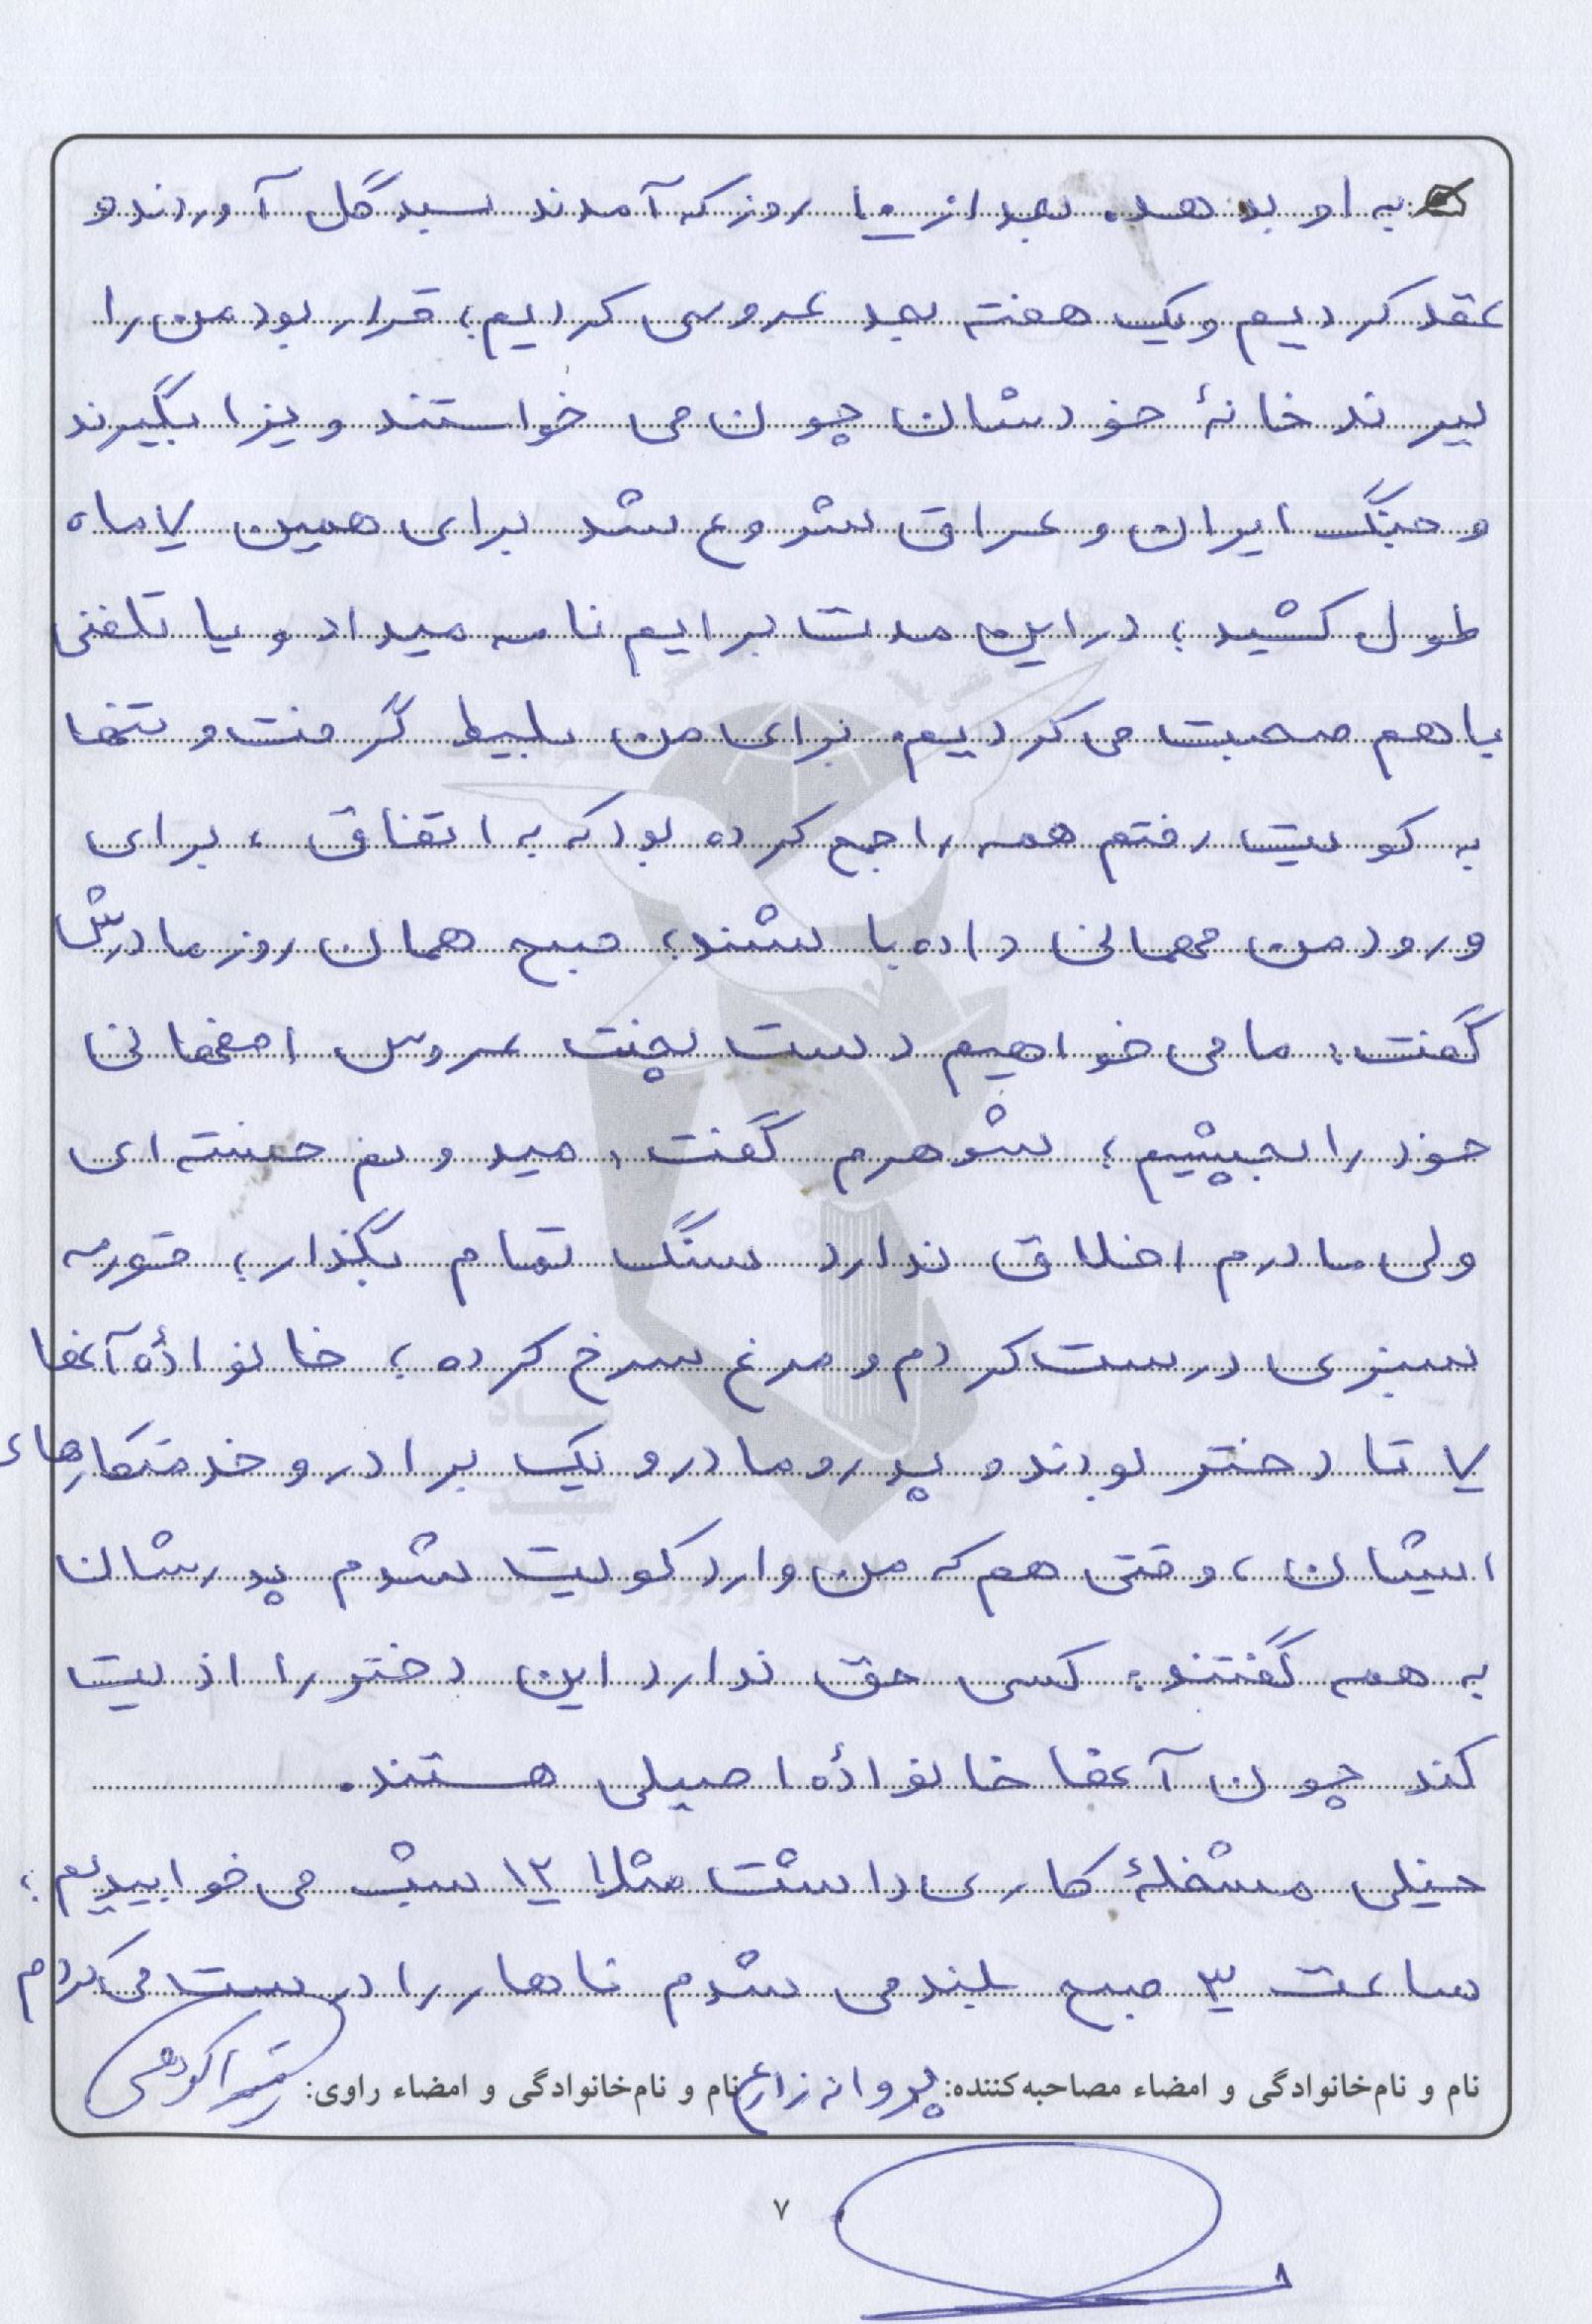 به او بدهد. بعد از ۱۰ روز که آمدند سبد گل آوردند و
عقد کردیم و یک هفته بعد عروسی کردیم؛ قرار بود من را
ببرند خانهٔ خودشان چون می خواستند ویزا بگیرند
و جنگ ایران و عراق شروع شد برای همین ۷ ماه
طول کشید؛ در این مدت برایم نامه میداد و یا تلفنی
با هم صحبت می کردیم. برای من بلیط گرفت و تنها
به کویت رفتم همه را جمع کرده بود که به اتفاق، برای
ورود من مهمانی داده باشند؛ صبح همان روز مادرش
گفت: ما می خواهیم دست پخت عروس اصفهانی
خود را بچشیم؛ شوهرم گفت: میدونم خسته ای
ولی مادرم اخلاق ندارد سنگ تمام بگذار؛ قورمه
سبزی درست کردم و مرغ سرخ کرده؛ خانوادهٔ آنها
۷ تا دختر بودند و پدر و مادر و یک برادر و خدمتکارهای
ایشان، وقتی هم که من وارد کویت شدم پدرشان
به همه گفتند: کسی حق ندارد این دختر را اذیت
کند چون آنها خانوادهٔ اصیلی هستند.
خیلی مشغلهٔ کاری داشت مثلا ۱۲ شب می خوابیدیم؛
ساعت ۳ صبح بلند می شدم ناهار را درست می کردم
نام و نام‌خانوادگی و امضاء مصاحبه‌کننده: پروانه زارع نام و نام‌خانوادگی و امضاء راوی:
۷